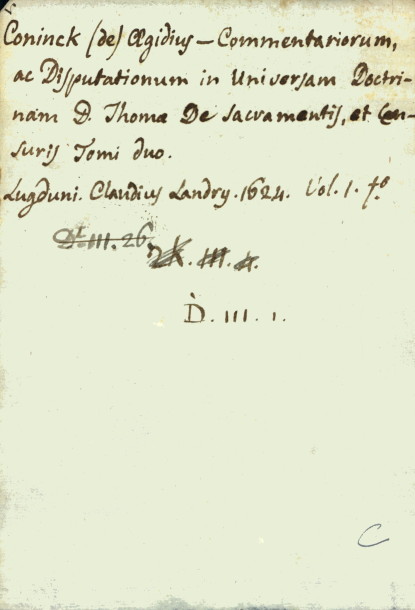 Coninck (de) Ægidius — Commentariorum,
ac Disputationum in Universam Doctri-
nam D. Thomæ De Sacramentis, et Cen-
suris Tomi duo.
Lugduni. Claudius Landry. 1624. Vol. 1. fo
III. 26.
III. 4.
D. III. 1.
C